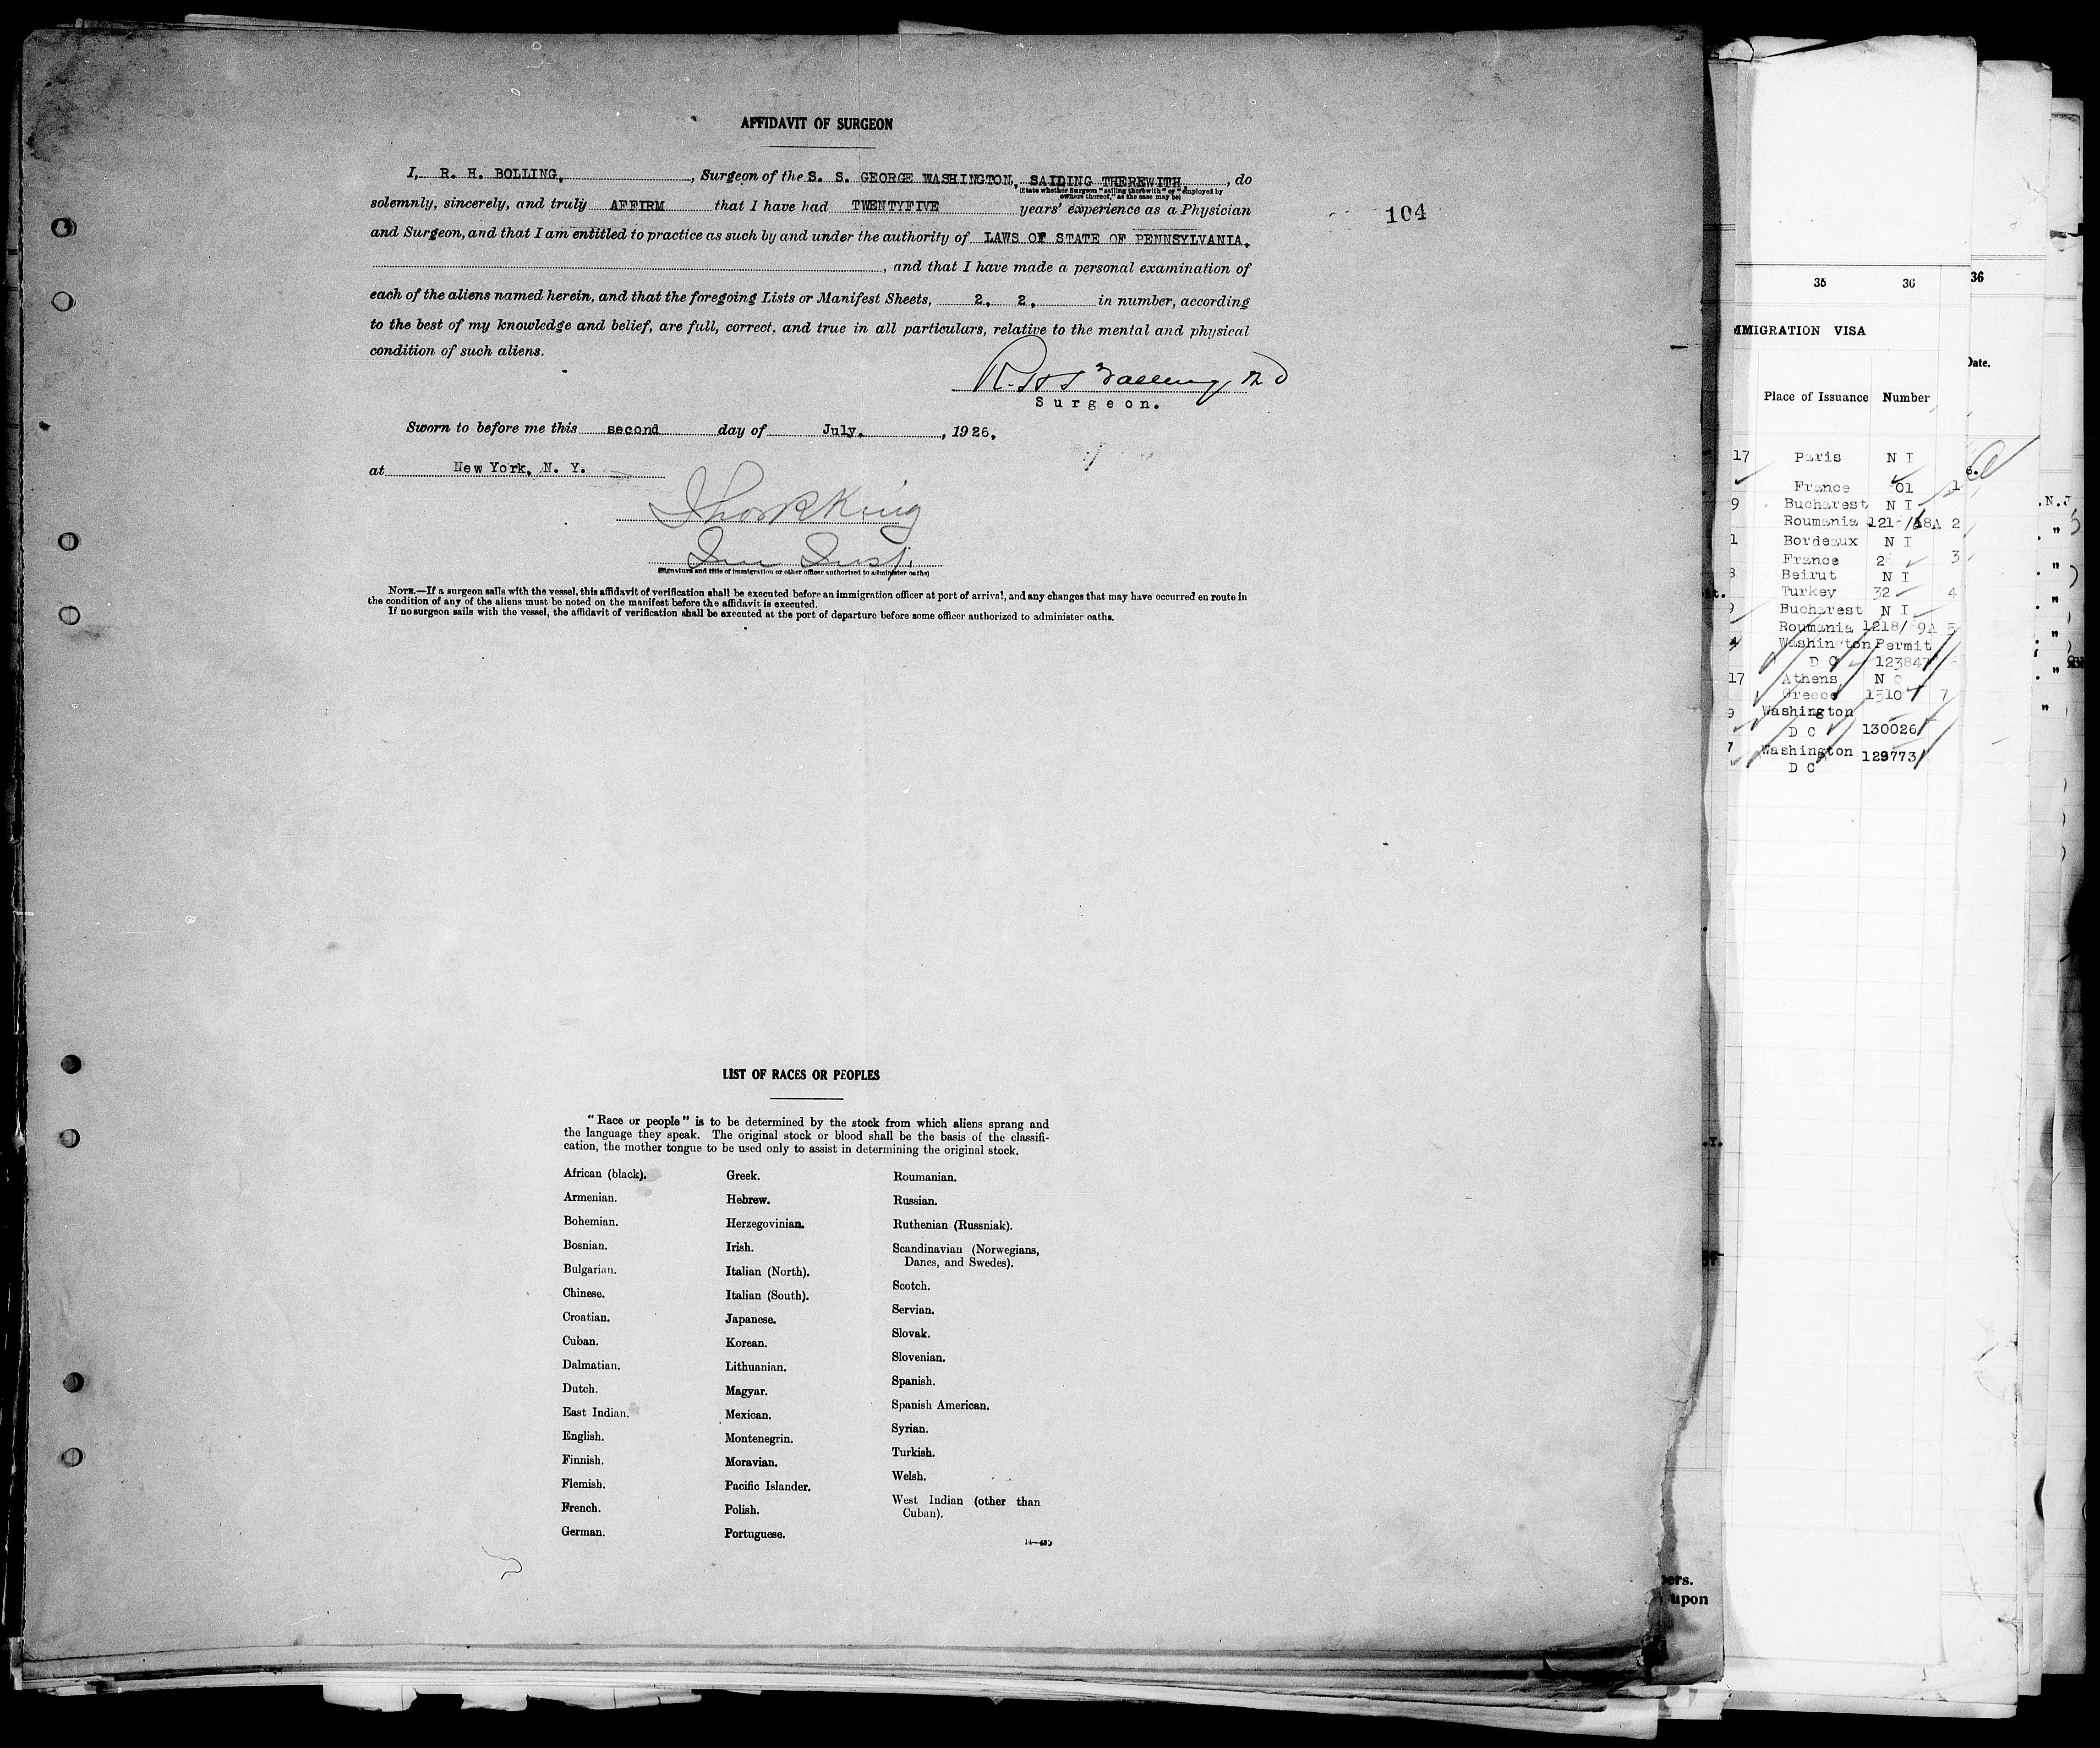 AFFIDAVIT OF SURGEON
I, R. H. BOLLING, , Surgeon of the S. S. GEORGE WASHINGTON, SAIDING THEREWITH , do
(State whether Surgeon "sailing therewith" or "employed by
owners thereof," as the case may be)
solemnly, sincerely, and truly AFFIRM that I have had TWENTYFIVE years' experience as a Physician
104
and Surgeon, and that I am entitled to practice as such by and under the authority of LAWS OF STATE OF PENNSYLVANIA.
, and that I have made a personal examination of
each of the aliens named herein, and that the foregoing Lists or Manifest Sheets, 2. 2. in number, according
to the best of my knowledge and belief, are full, correct, and true in all particulars, relative to the mental and physical
condition of such aliens.
Surgeon.
Sworn to before me this second day of July. , 1926.
at New York, N. Y.
King
(Signature and title of immigration or other officer authorized to administer oaths)
NOTE.—If a surgeon sails with the vessel, this affidavit of verification shall be executed before an immigration officer at port of arrival, and any changes that may have occurred en route in
the condition of any of the aliens must be noted on the manifest before the affidavit is executed.
If no surgeon sails with the vessel, the affidavit of verification shall be executed at the port of departure before some officer authorized to administer oaths.
LIST OF RACES OR PEOPLES
"Race or people" is to be determined by the stock from which aliens sprang and
the language they speak. The original stock or blood shall be the basis of the classifi-
cation, the mother tongue to be used only to assist in determining the original stock.
African (black).
Armenian.
Bohemian.
Bosnian.
Bulgarian.
Chinese.
Croatian.
Cuban.
Dalmatian.
Dutch.
East Indian.
English.
Finnish.
Flemish.
French.
German.
Greek.
Hebrew.
Herzegovinian.
Irish.
Italian (North).
Italian (South).
Japanese.
Korean.
Lithuanian.
Magyar.
Mexican.
Montenegrin.
Moravian.
Pacific Islander.
Polish.
Portuguese.
Roumanian.
Russian.
Ruthenian (Russniak).
Scandinavian (Norwegians,
Danes, and Swedes).
Scotch.
Servian.
Slovak.
Slovenian.
Spanish.
Spanish American.
Syrian.
Turkish.
Welsh.
West Indian (other than
Cuban).
35 36
MMIGRATION VISA
Place of Issuance Number
17 Paris N I
France 01 1
9 Bucharest N I
Roumania 2
1 Bordeaux N I
France 2 3
8 Beirut N I
Turkey 32 4
9 Bucharest N I
Roumania 1218/ 9A 5
4 Washington Permit
D C 123847
17 Athens N
Greece 1510 7
9 Washington
D C 130026
7 Washington 129773
D C
36
Date.
N.J
.Y.
ers.
upon